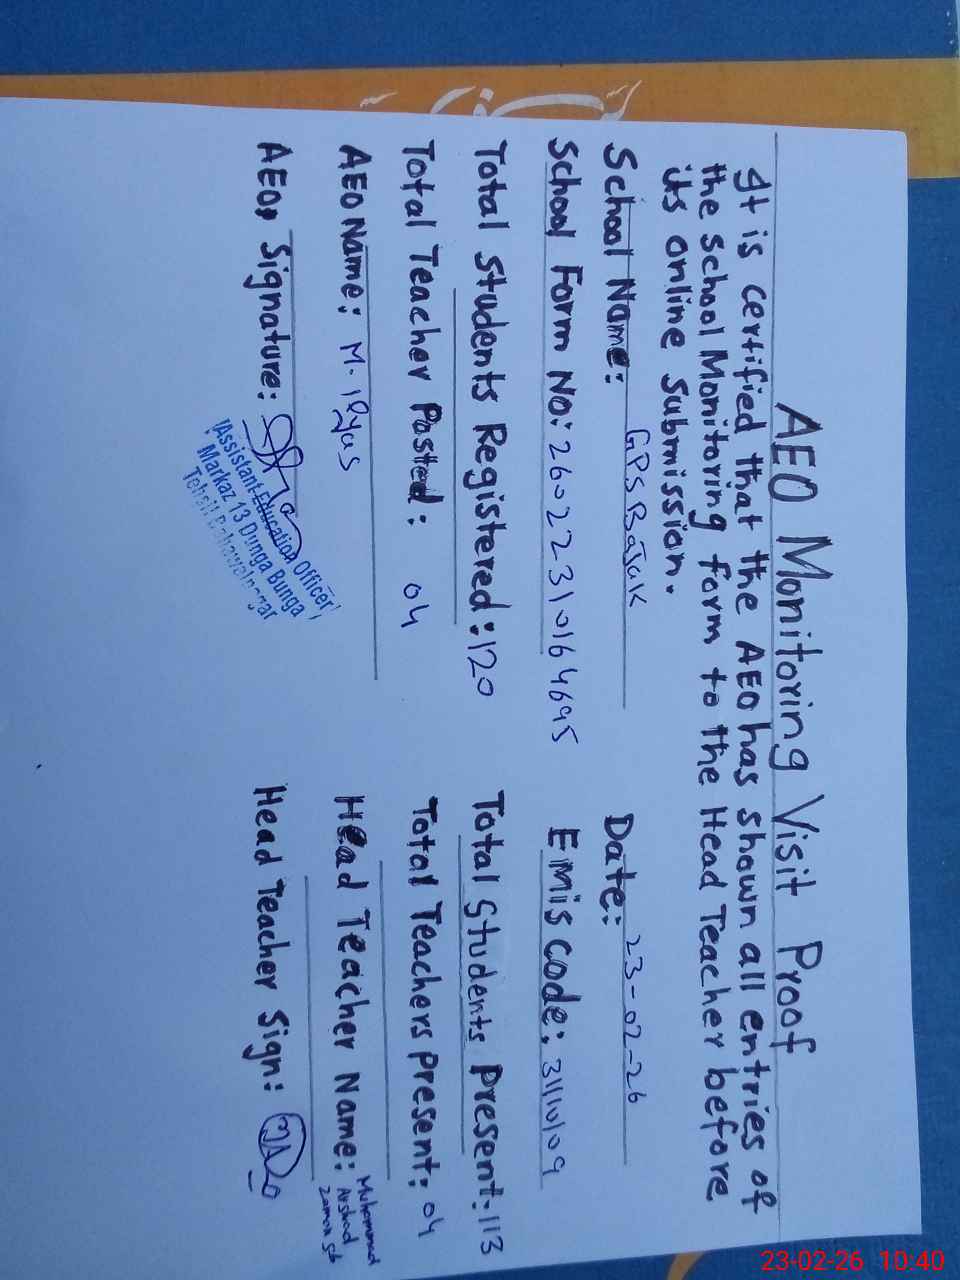 AEO Monitoring Visit Proof
It is certified that the AEO has shown all entries of
the School Monitoring form to the Head Teacher before
its online submission.
School Name: GPS Rajak Date: 23-02-26
School Form No: 26022310164695 Emis code: 31110109
Total Students Registered: 120 Total Students Present: 113
Total Teacher Posted: 04 Total Teachers present: 04
AEO Name: M. Ilyas Head Teacher Name: Muhammad
Arshad
Zaman Sb
AEO, Signature: Head Teacher Sign:
Assistant Education Officer
Markaz 13 Dunga Bunga
Tehsil Bahawalnagar
23-02-26 10:40